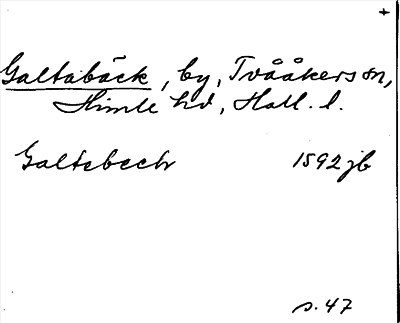 +
Galtabäck, by, Tvååkers sn,
Himle hd, Hall. l.
Galtebeck 1592 jb
s. 47